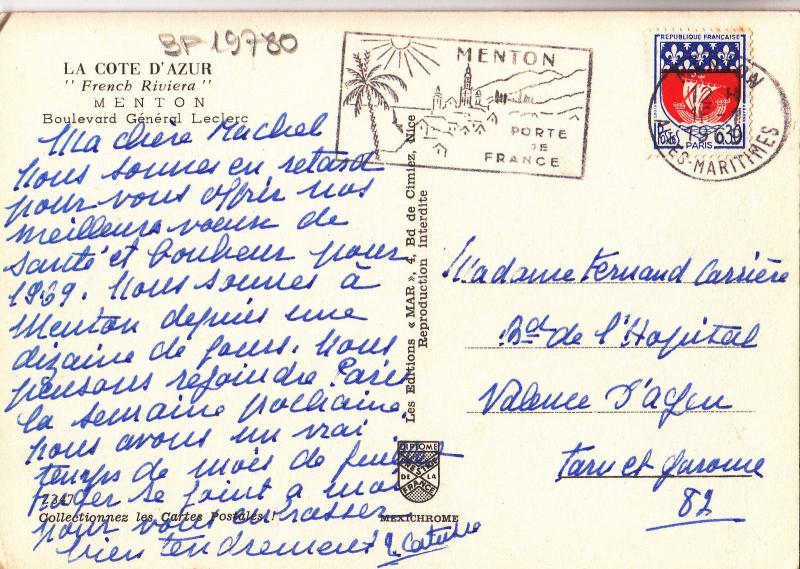 BP 19780
LA COTE D'AZUR
"French Riviera"
MENTON
Boulevard Général Leclerc
Ma chère Rachel
nous sommes en retard
pour vous offrir nos
meilleurs voeux de
santé et bonheur pour
1969. Nous sommes à
Menton depuis une
dizaine de jours. Nous
pensons rejoindre Paris
la semaine prochaine.
nous avons un vrai
temps de mois de juillet
se joint à moi
pour vous embrasser
bien tendrement
Z3470
Collectionnez les Cartes Postales !
MEXICHROME
DIPLOME
PRESTIGE
DE LA
FRANCE
Les Editions « MAR », 4, Bd de Cimiez, Nice
Reproduction Interdite
MENTON
PORTE
DE
FRANCE
REPUBLIQUE FRANÇAISE
0,30
PARIS
MENTON
ALPES-MARITIMES
Madame Fernand Carrière
Bd de l'Hopital
Valence D'Agen
Tarn et Garonne
82